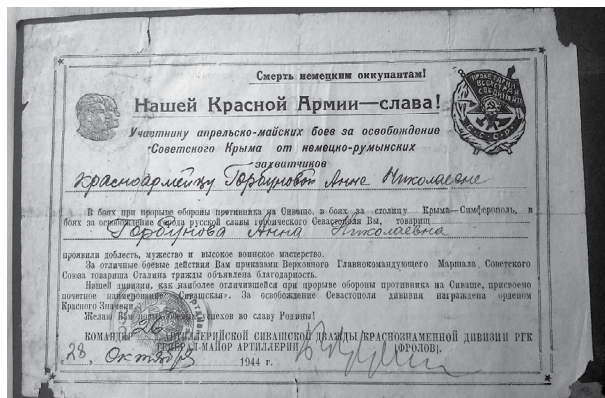 Смерть немецким оккупантам!
Нашей Красной Армии—слава!
ПРОЛЕТАРИИ
ВСЕХ СТРАН
СОЕДИНЯЙТЕСЬ
С.С.С.Р.
Участнику апрельско-майских боев за освобождение
Советского Крыма от немецко-румынских
захватчиков
Красноармейцу Горбуновой Анне Николаевне
В боях при прорыве обороны противника на Сиваше, в боях за столицу Крыма—Симферополь, в
боях за освобождение города русской славы героического Севастополя Вы, товарищ
Горбунова Анна Николаевна
проявили доблесть, мужество и высокое воинское мастерство.
За отличные боевые действия Вам приказами Верховного Главнокомандующего Маршала Советского
Союза товарища Сталина трижды объявлена благодарность.
Нашей дивизии, как наиболее отличившейся при прорыве обороны противника на Сиваше, присвоено
почетное наименование "Сивашская". За освобождение Севастополя дивизия награждена орденом
Красного Знамени.
Желаю Вам новых боевых успехов во славу Родины!
КОМАНДИР 26 АРТИЛЛЕРИЙСКОЙ СИВАШСКОЙ ДВАЖДЫ КРАСНОЗНАМЕННОЙ ДИВИЗИИ РГК
ГЕНЕРАЛ-МАЙОР АРТИЛЛЕРИИ (ФРОЛОВ).
"28" Октября 1944 г.